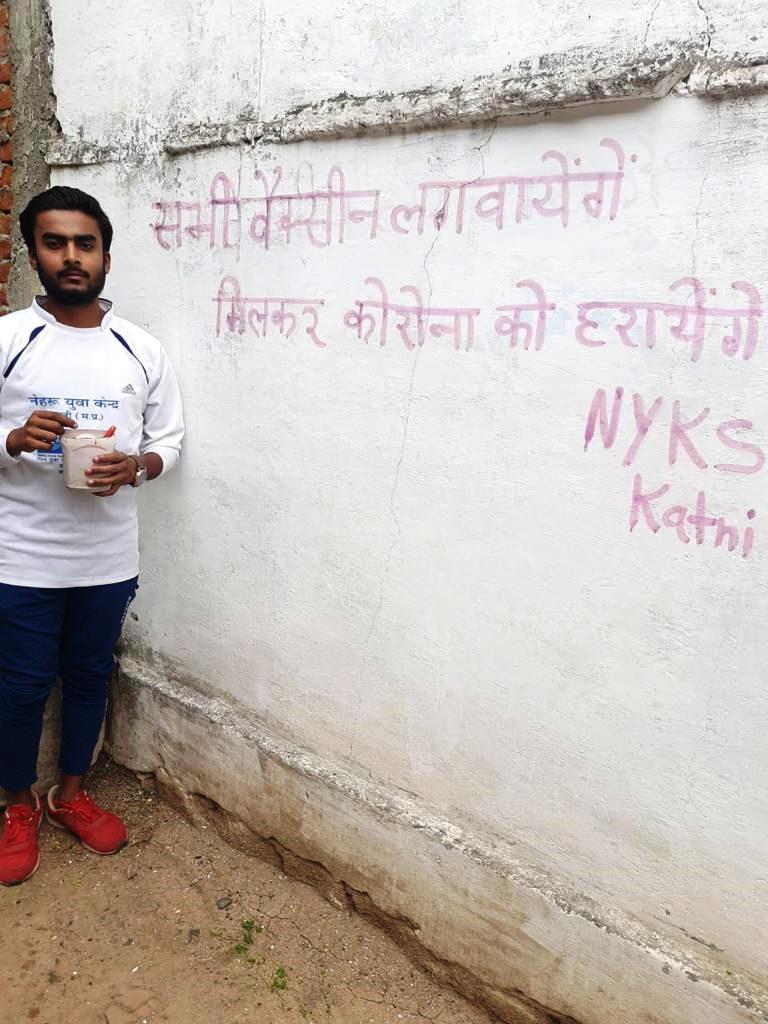 सभी वैक्सीन लगवायेंगें
मिलकर कोरोना को हरायेंगे
NYKS
Katni
नेहरू युवा केन्द्र
(म.प्र.)